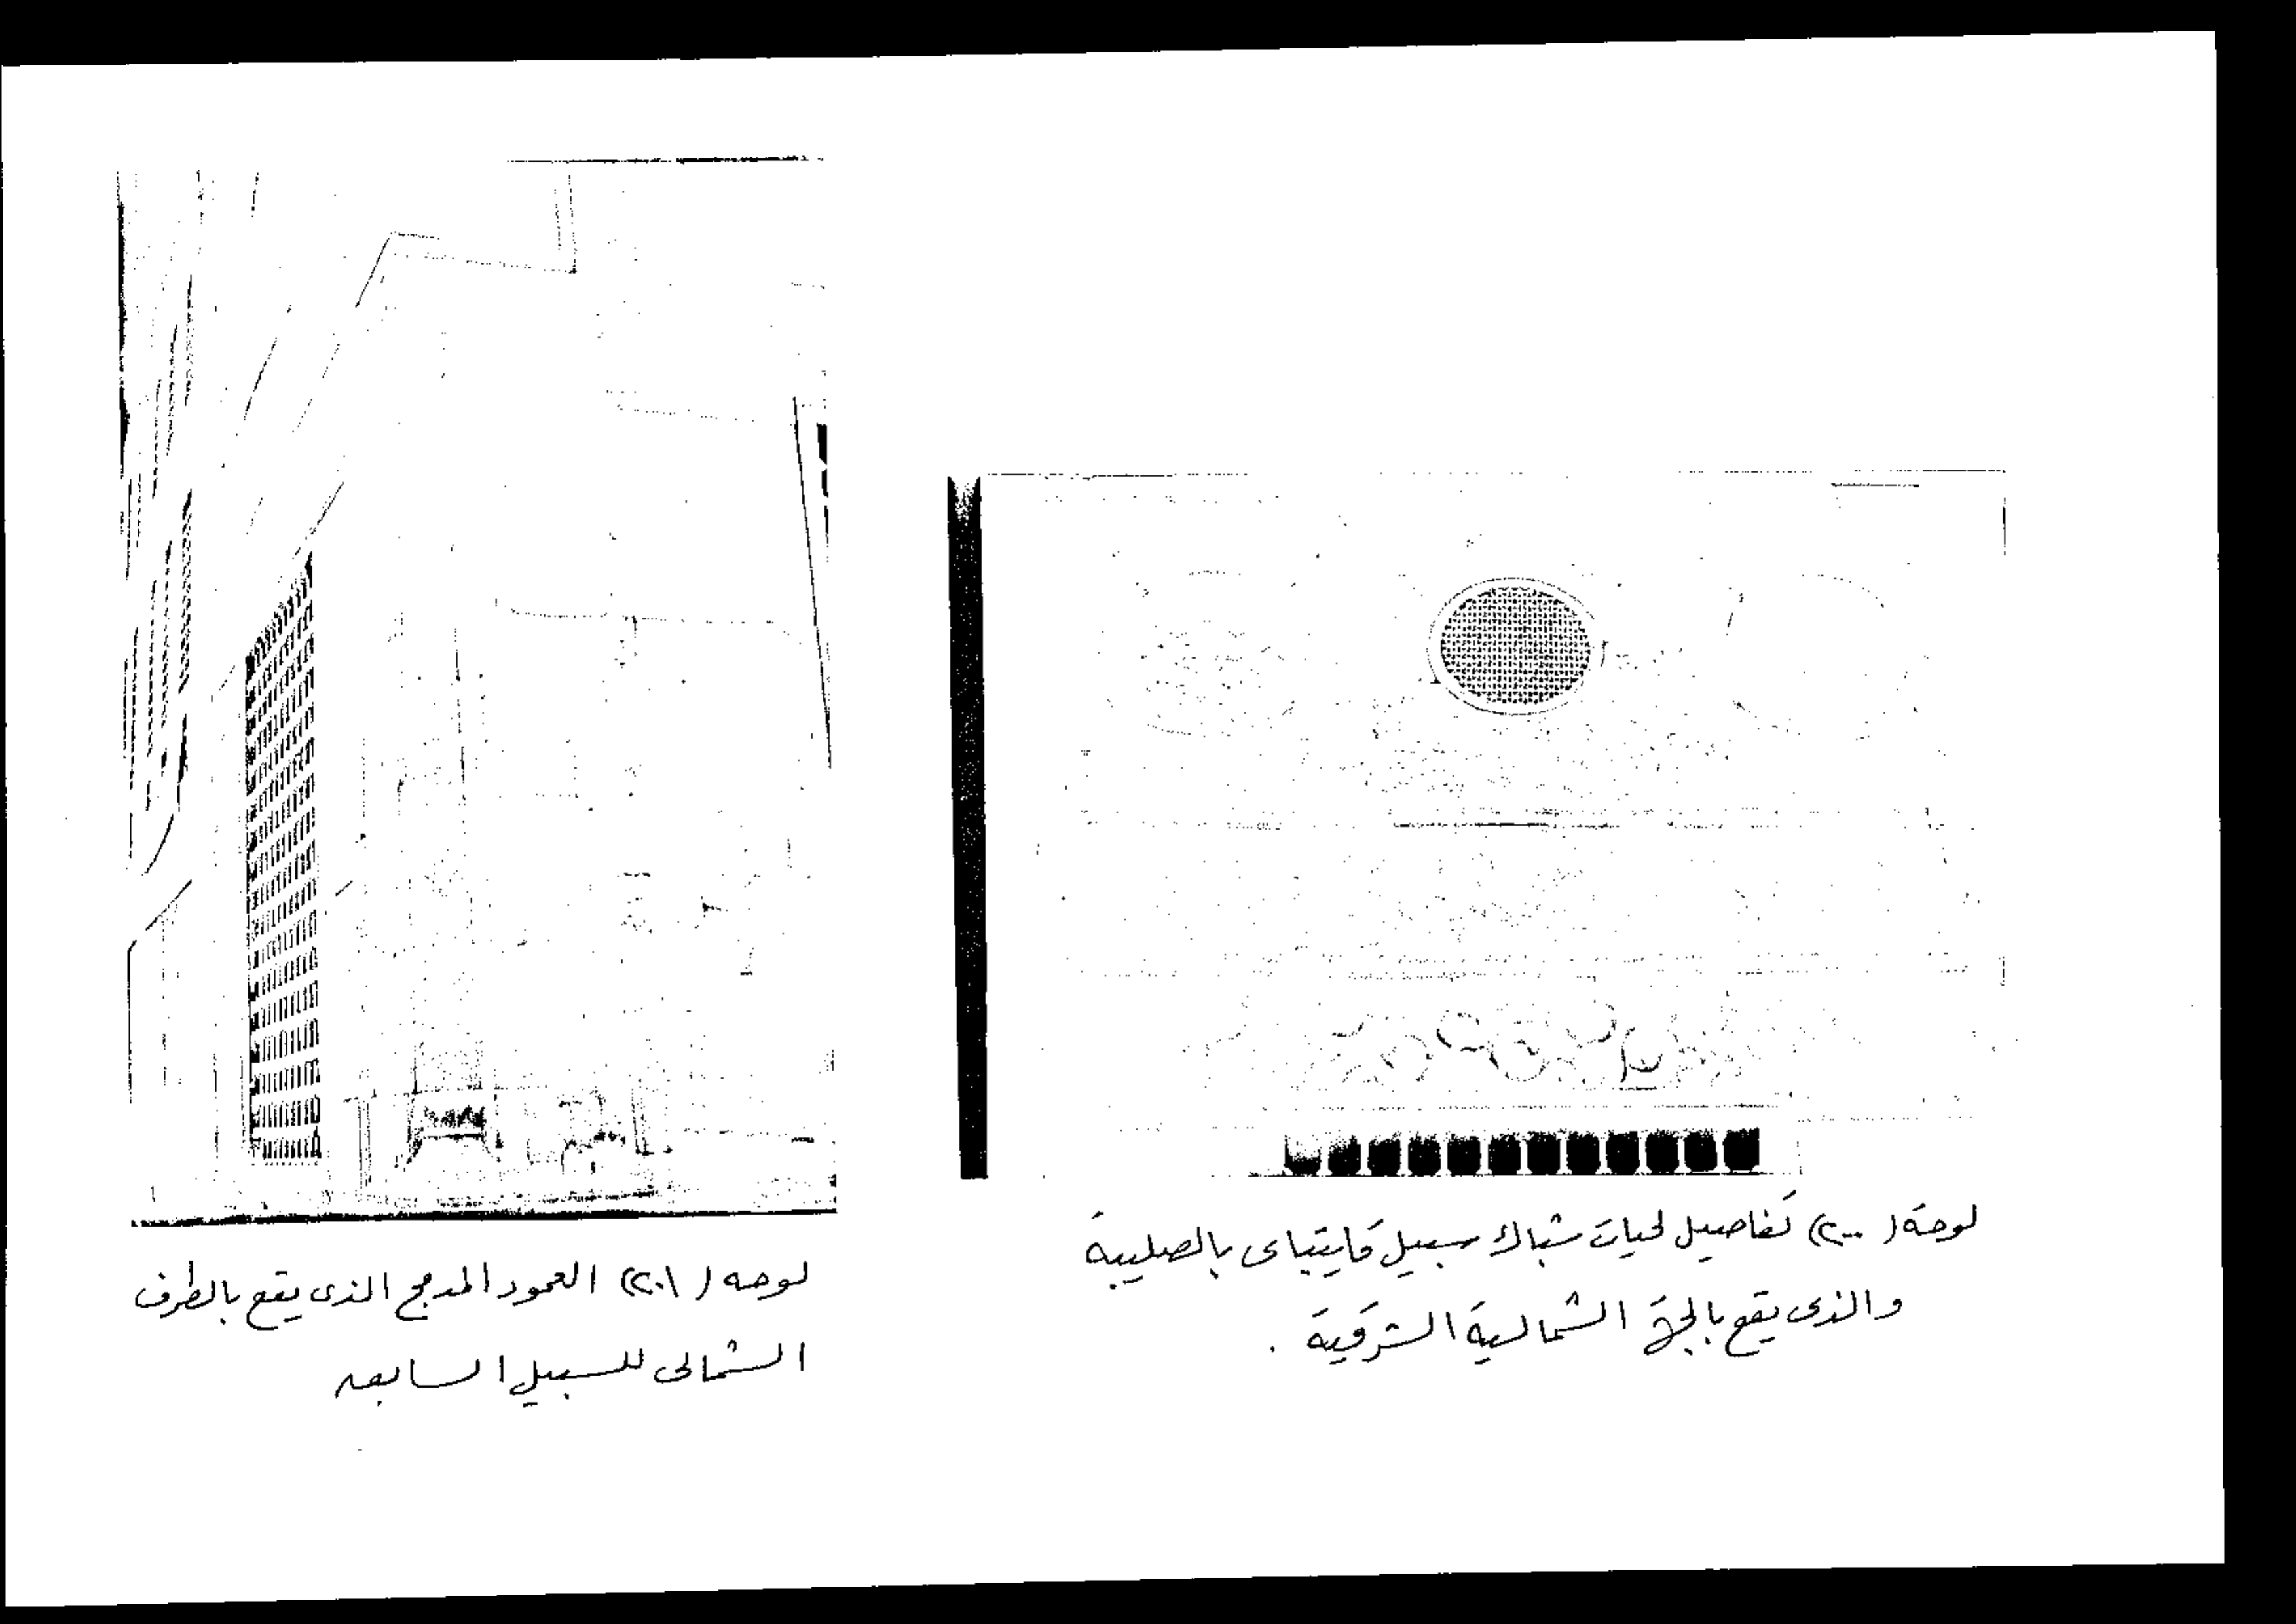 لوحة (٢٠٠) تفاصيل لحيات شباك سبيل قايتباى بالصليبة
والذى يقع بالجهة الشمالية الشرقية .
لوحه (٢٠١) العمود المدمج الذى يقع بالطرف
الشمالى للسبيل السابق